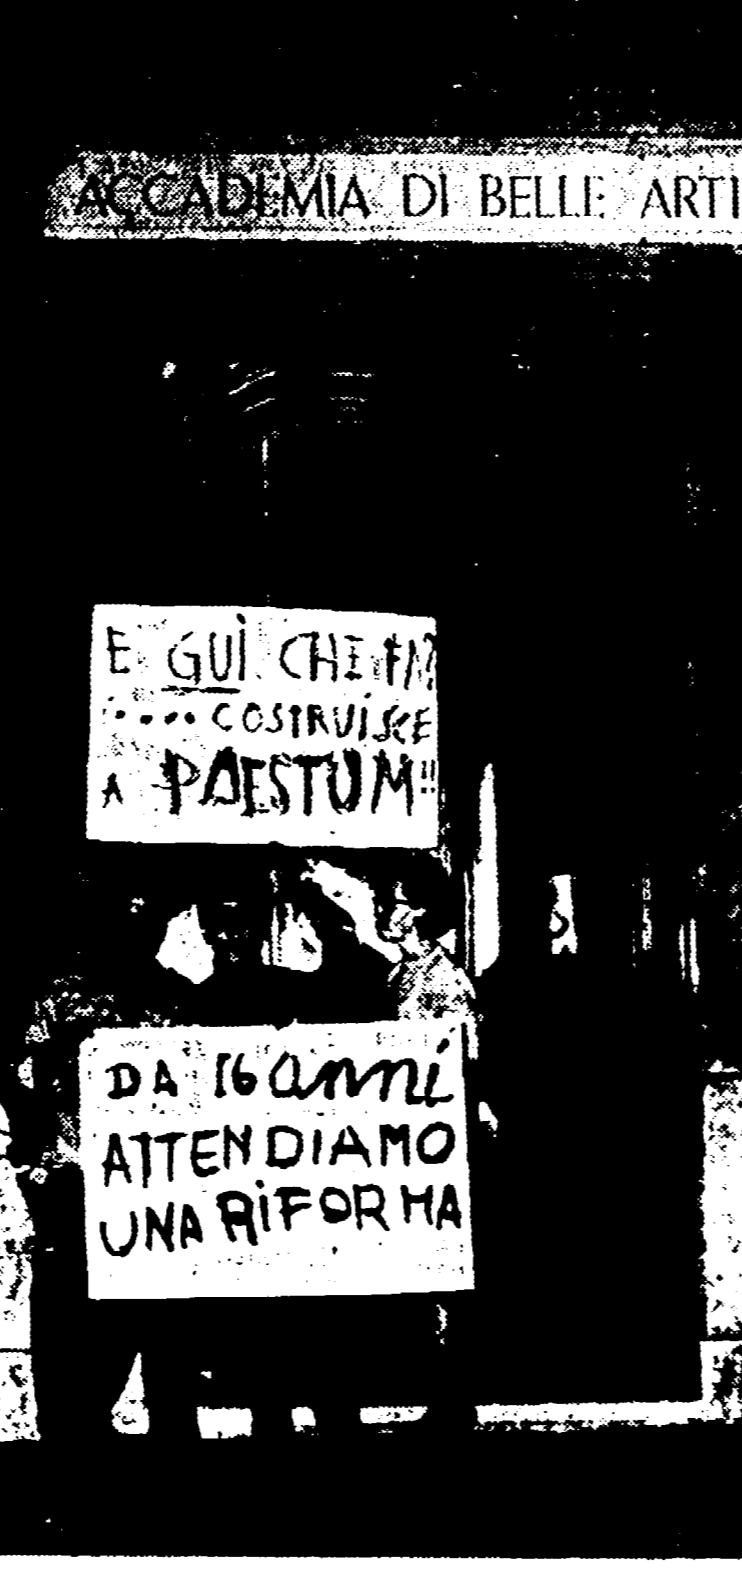 ACCADEMIA DI BELLE ARTI
E GUÌ CHI FA?
.... COSTRUISCE
A PAESTUM!!
DA 16 anni
ATTENDIAMO
UNA RIFORMA